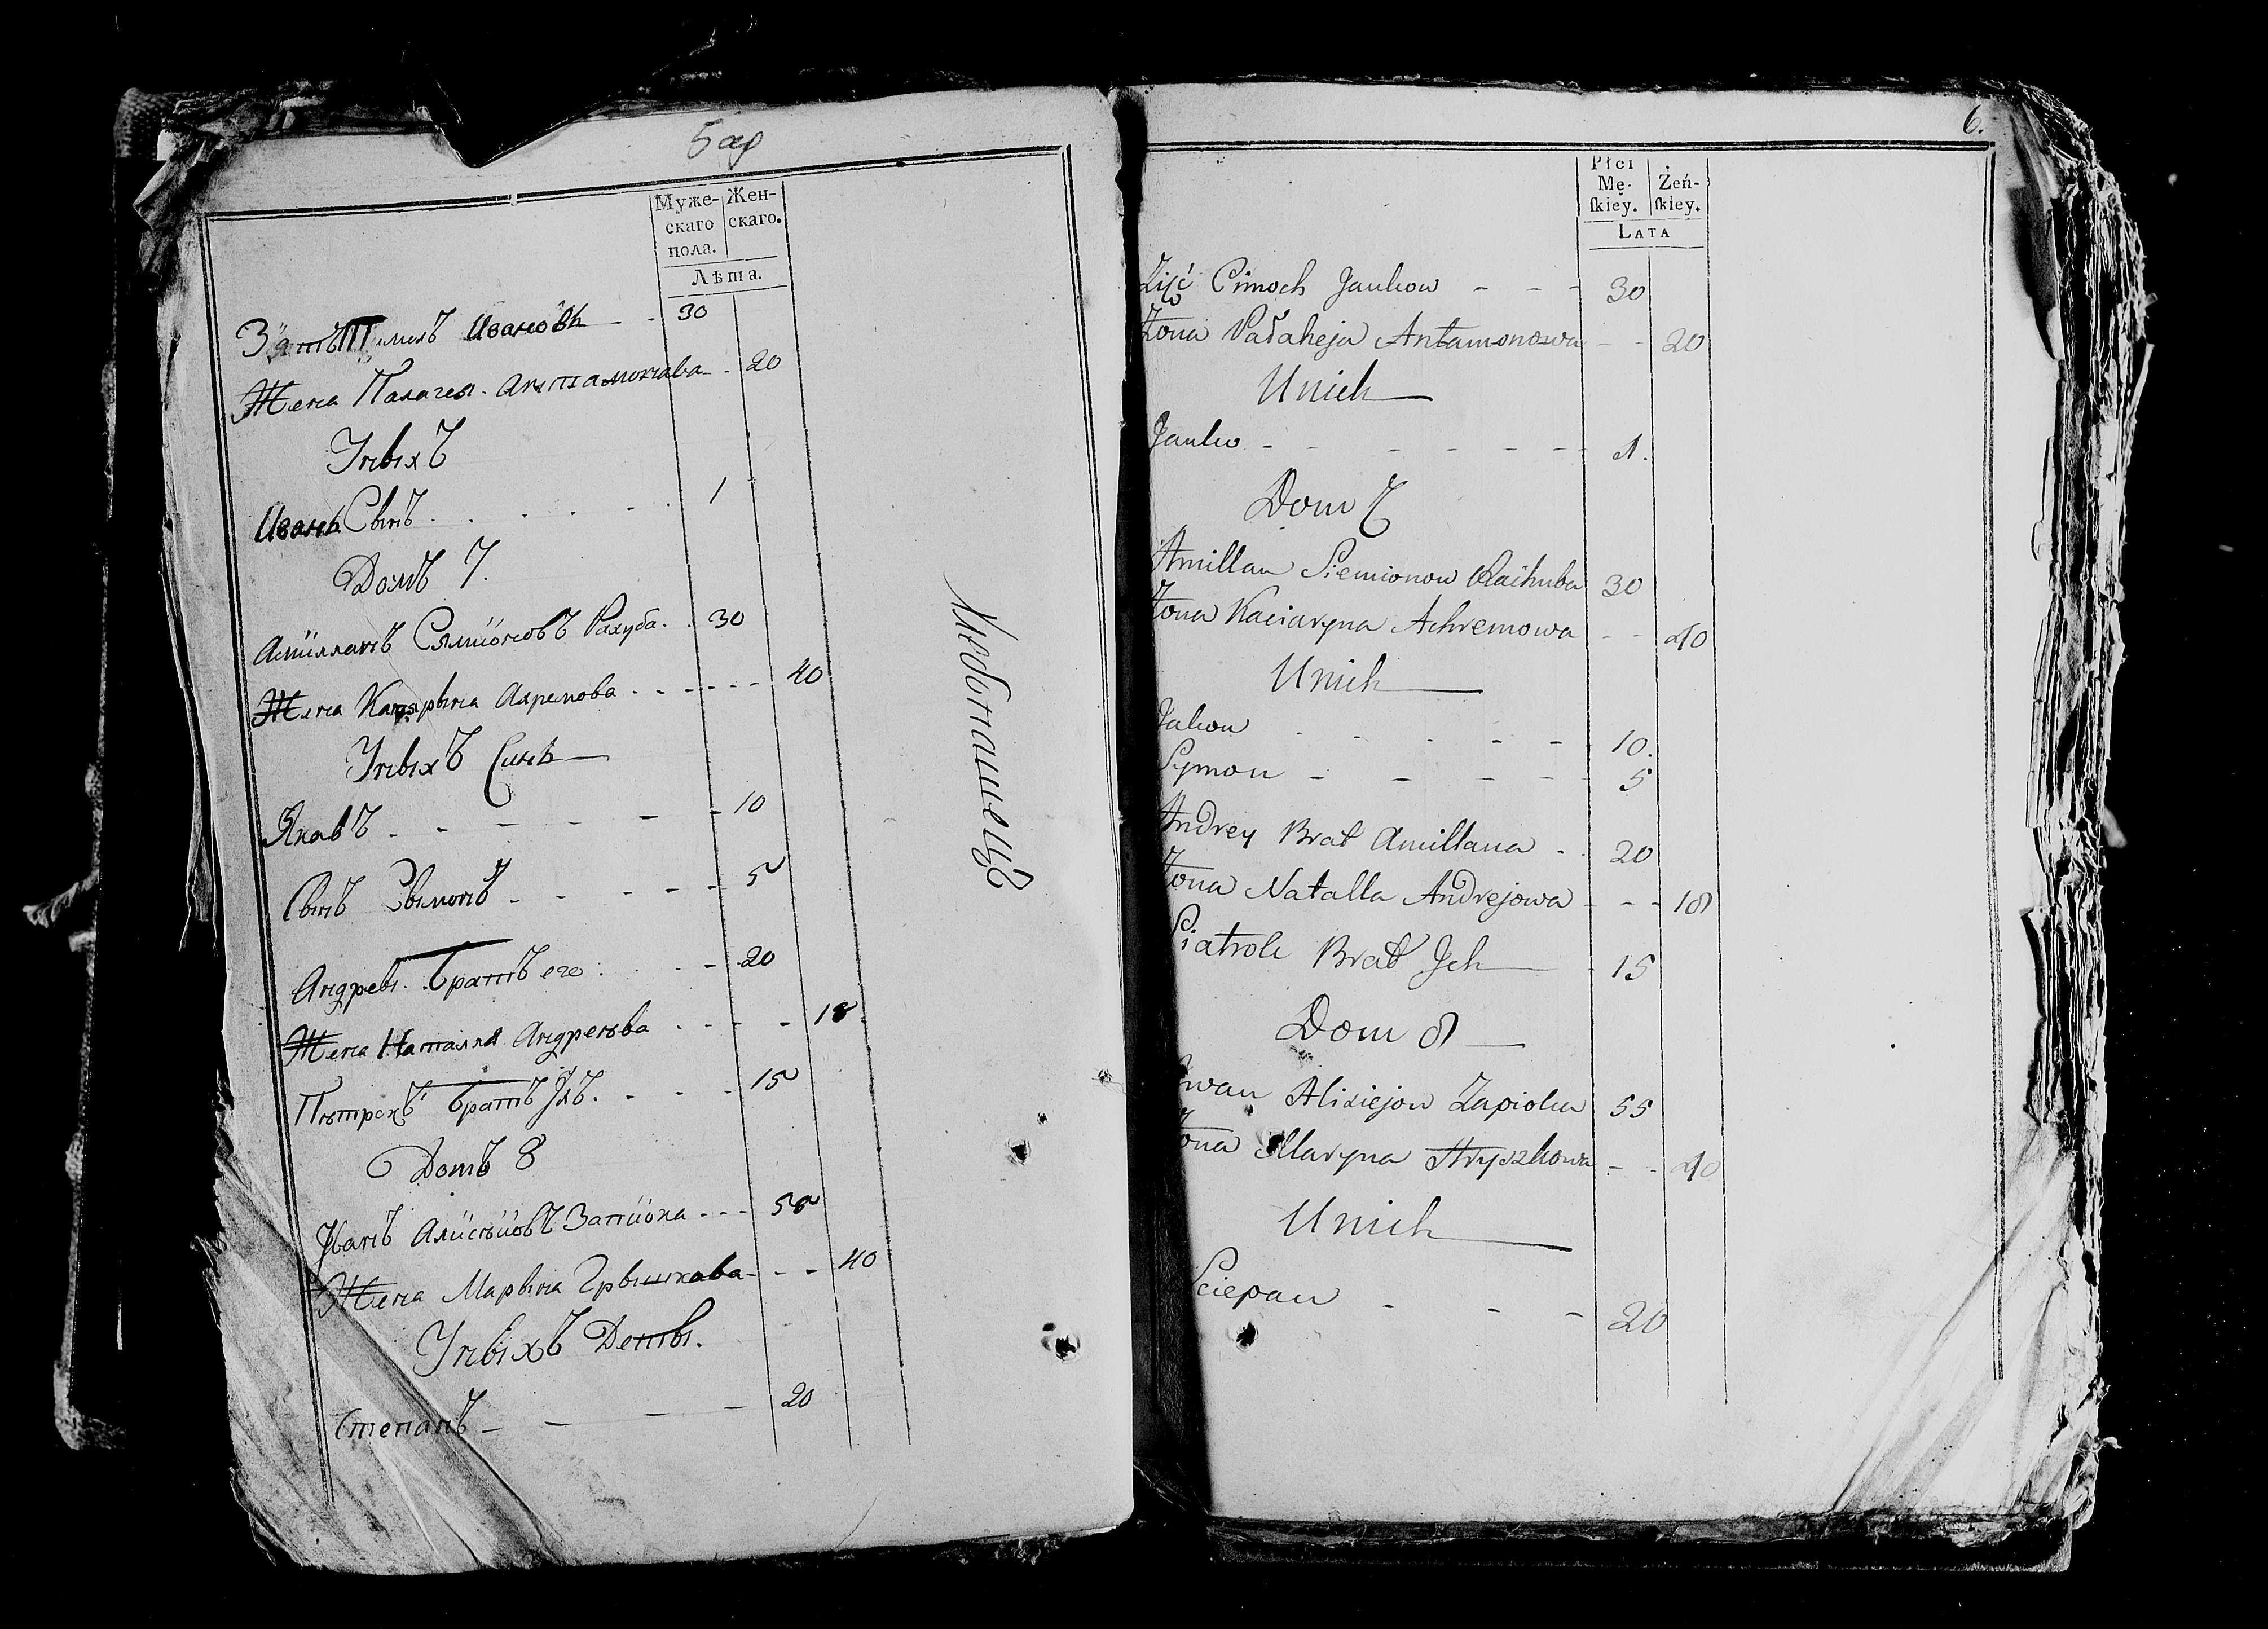 5 об
Муже-
скаго
пола.
Жен-
скаго.
Лѣта.
Зятъ Тимохъ Ивановъ - - 30
Жена Палагея Антамонава - 20
Унвıхъ
Иванъ Свıнъ . . . . . 1
Домъ 7.
Амïлланъ Сямïоновъ Рахуба . . 30
Жена Катярвıна Ахремова . - - - - - 40
Унвıхъ Синв
Якавъ - - - - - - 10
Свıнъ Свıмонъ - - - - - 5
Андревı Братъ его . . . - 20
Жена Наталля Андреява . - - - 18
Пятрокъ Братъ Ихъ . - - - 15
Домъ 8
Иванъ Алïсѣïовъ Запïока - - - 58
Жена Марвıна Грвıшкава - - - 40
Унвıхъ Дѣтвı.
Степанъ - - - - 20
Любопытецъ
6.
Płci
Mę-
ſkiey.
Żeń-
ſkiey.
LATA
Zięć Cimoch Jankow - - - 30
Żona Pałaheja Antamonowa - - 20
U nich
Janko - - - - - - 1.
Dom 7
Amillan Siemionow Rachuba 30
Żona Kaciaryna Achremowa - - 40
U nich
Jakow - - - - - 10.
Symon - - - - - 5
Andrey Brat Amillana - . 20
Żona Natalla Andrejowa - - - 18
Piatrok Brat Jch 15
Dom 8
Jwan Alisiejow Zapioka 55
Żona Maryna Hryszkowa - - 40
U nich
Sciepan - - - 20